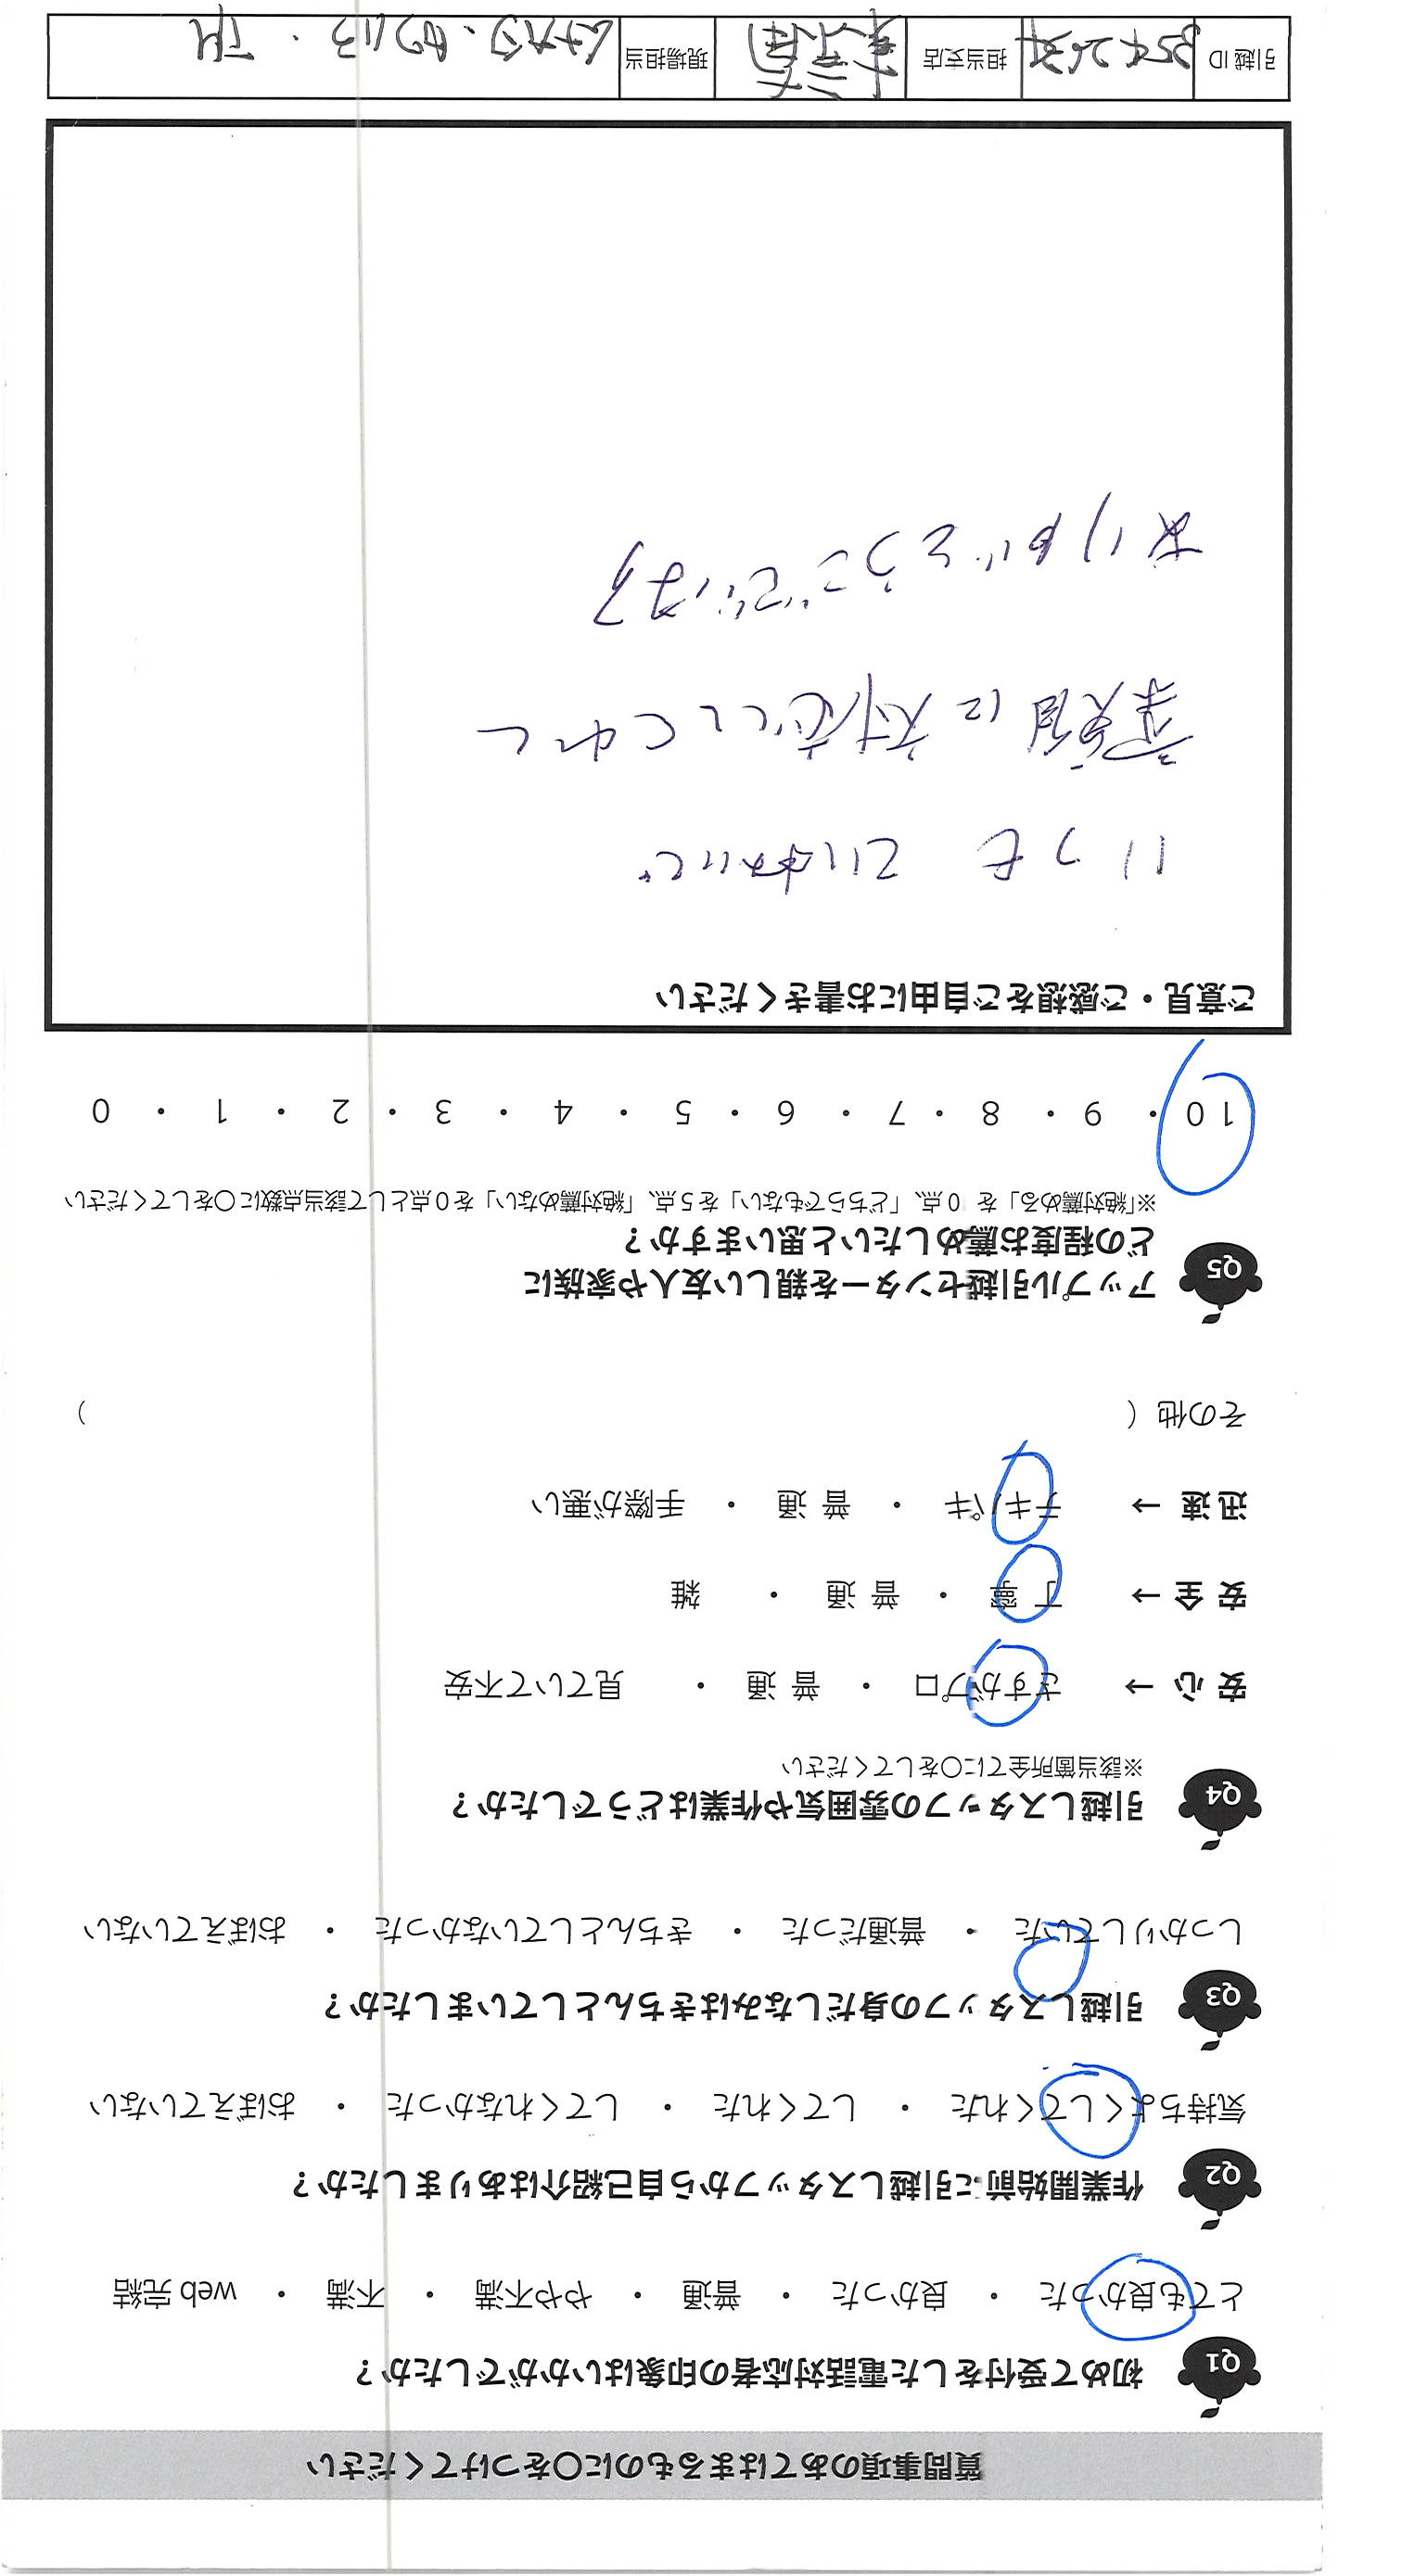 質問事項のあてはまるものに〇をつけてください
Q1 初めて受付をした電話対応者の印象はいかがでしたか？
とても良かった ・ 良かった ・ 普通 ・ やや不満 ・ 不満 ・ web 完結
Q2 作業開始前に引越しスタッフから自己紹介はありましたか？
気持ちよくしてくれた ・ してくれた ・ してくれなかった ・ おぼえていない
Q3 引越しスタッフの身だしなみはきちんとしていましたか？
しっかりしていた ・ 普通だった ・ きちんとしていなかった ・ おぼえていない
Q4 引越しスタッフの雰囲気や作業はどうでしたか？
※該当箇所全てに〇をしてください
安 心 → さすがプロ ・ 普 通 ・ 見ていて不安
安 全 → 丁 寧 ・ 普 通 ・ 雑
迅 速 → テキパキ ・ 普 通 ・ 手際が悪い
その他（ ）
Q5 アップル引越センターを親しい友人や家族に
どの程度お薦めしたいと思いますか？
※「絶対薦める」を 0点、「どちらでもない」を5点、「絶対薦めない」を0点として該当点数に〇をしてください
10 ・ 9 ・ 8 ・ 7 ・ 6 ・ 5 ・ 4 ・ 3 ・ 2 ・ 1 ・ 0
ご意見・ご感想をご自由にお書きください
いつも ていねいで
親切に対応してくれて
ありがとうございます
引越ID 担当支店 現場担当